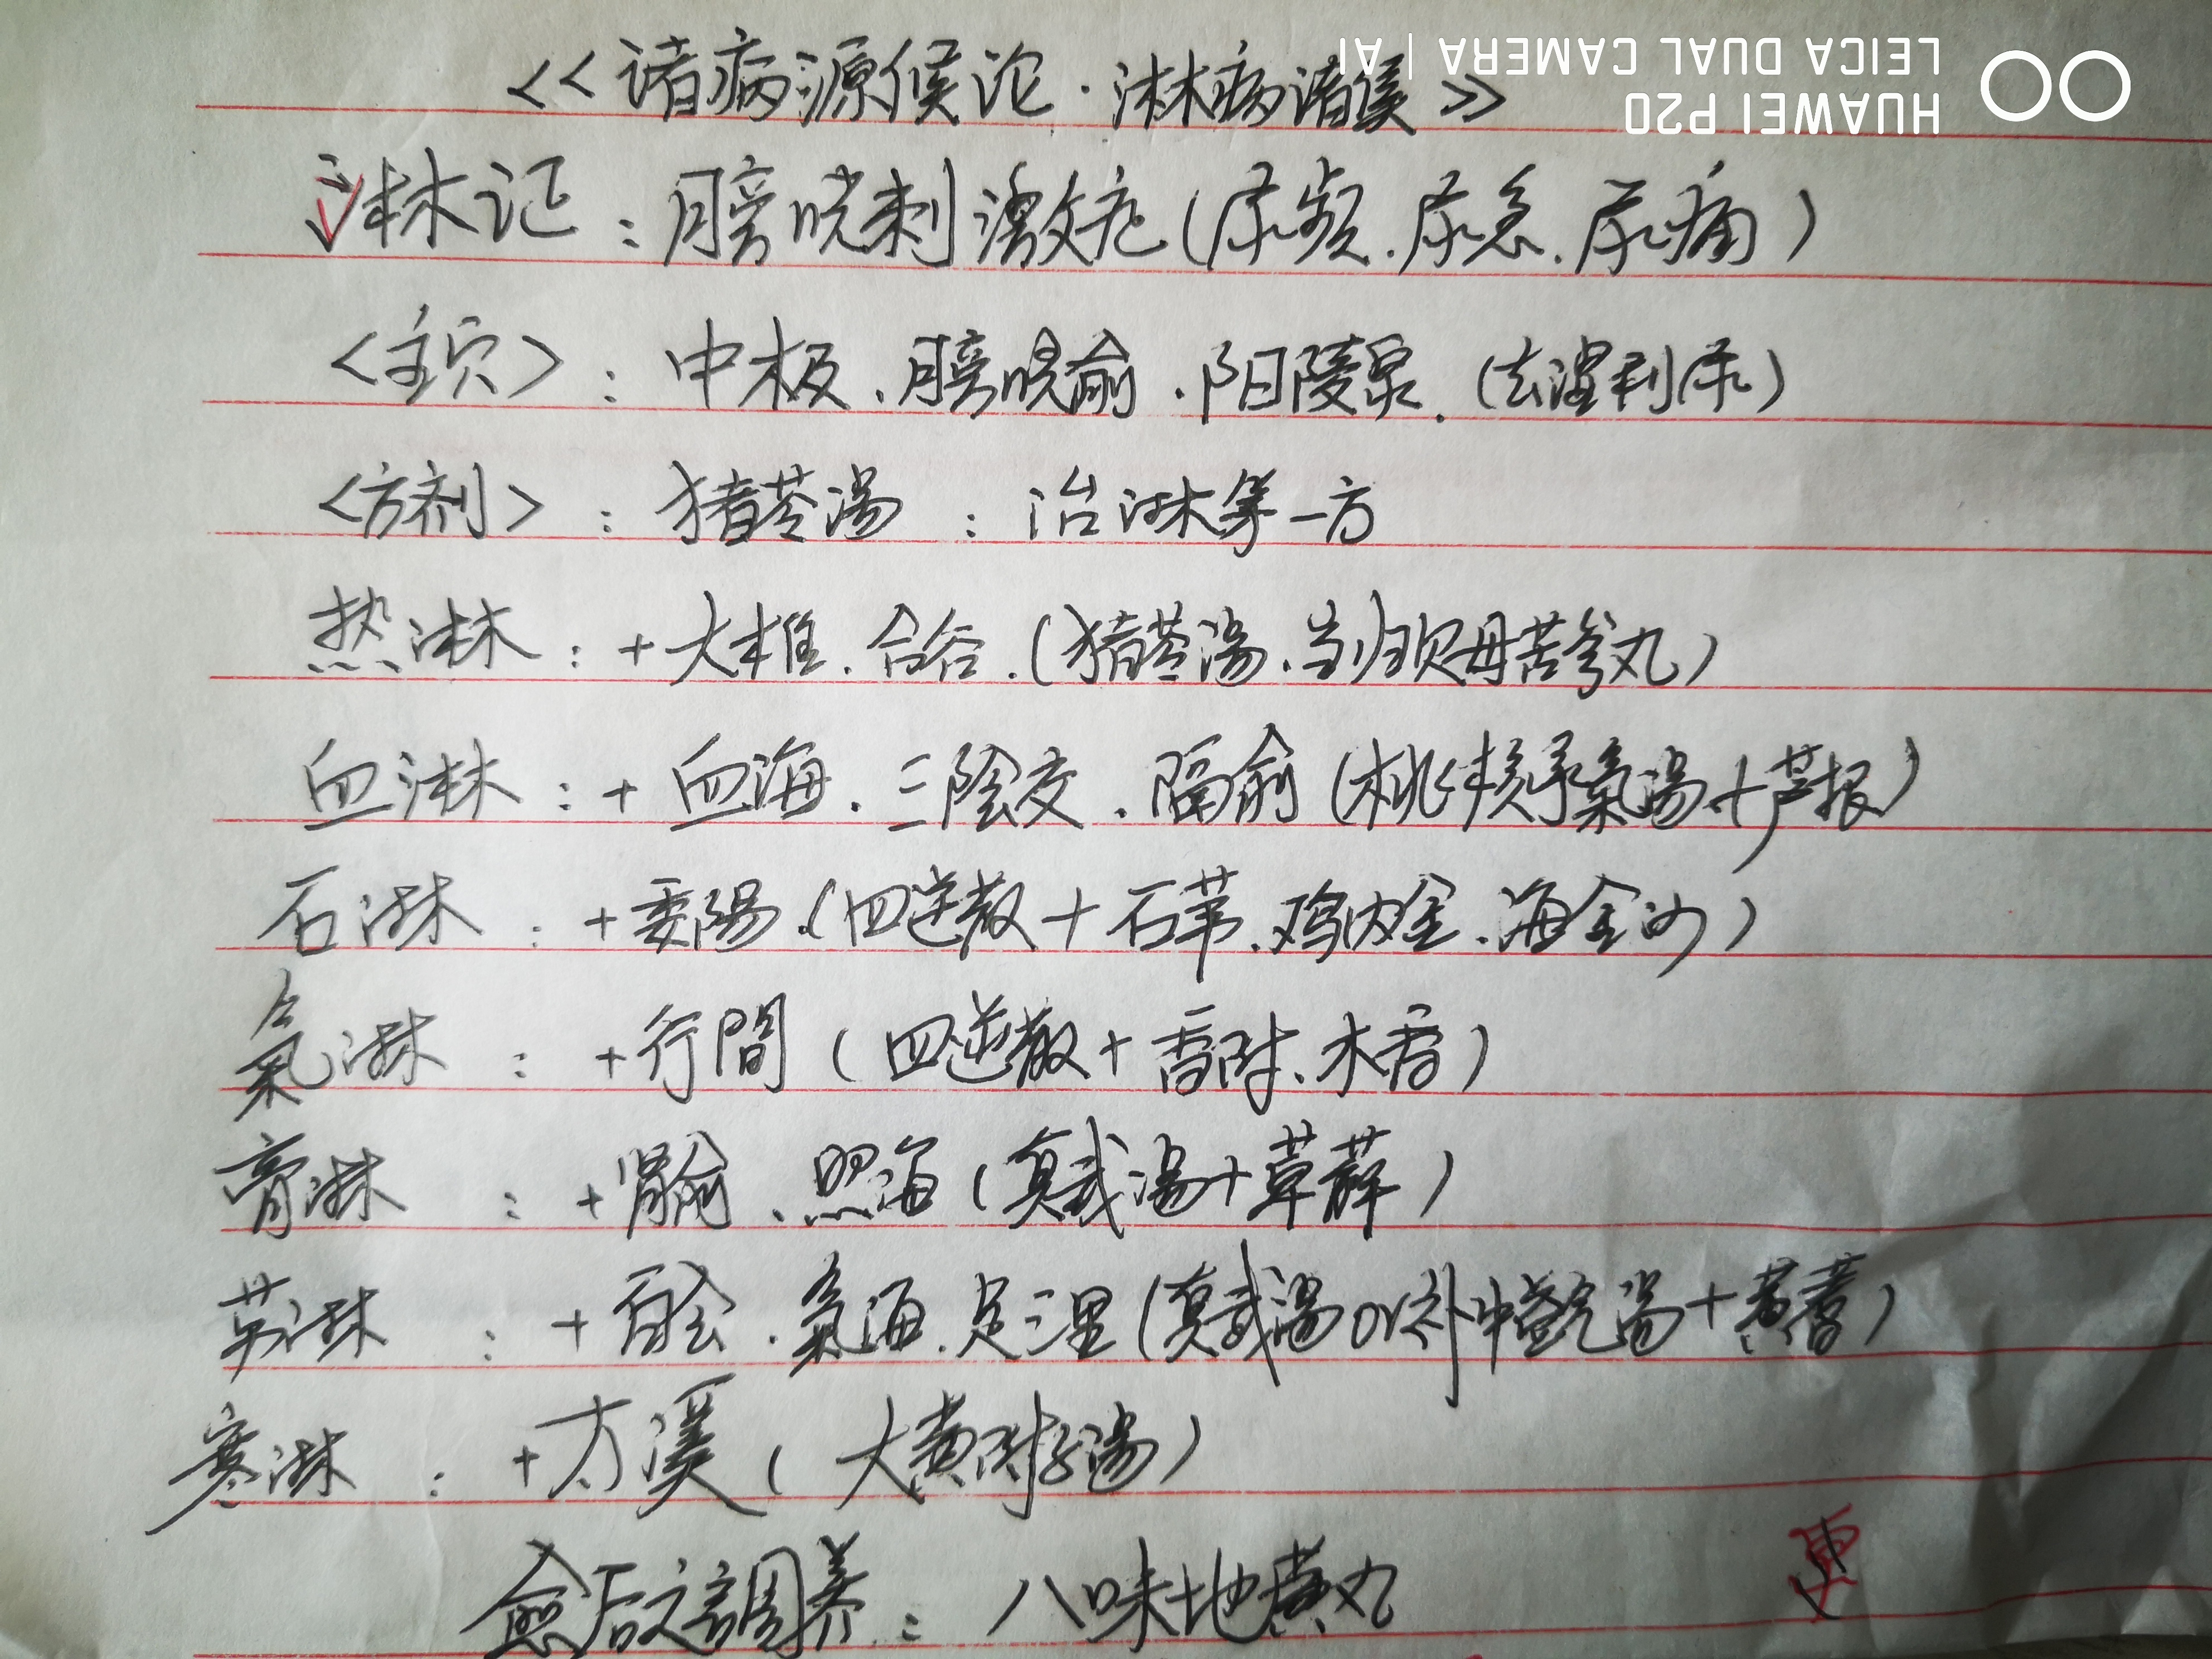 <<诸病源候论·淋病诸候>>
HUAWEI P20
LEICA DUAL CAMERA | AI
淋证：膀胱刺激症(尿频.尿急.尿痛)
<主穴>：中极.膀胱俞.阳陵泉.(去湿利尿)
<方剂>：猪苓湯：治淋第一方
热淋：+大椎.合谷.(猪苓湯.当归贝母苦参丸)
血淋：+血海.三陰交.隔俞(桃核承氣湯+芦根)
石淋：+委陽.(四逆散+石苇.鸡内金.海金沙)
氣淋：+行間(四逆散+香附、木香)
膏淋：+肾俞、照海(真武湯+萆薢)
劳淋：+百会.氣海.足三里(真武湯or补中益气湯+黄蓍)
寒淋：+太溪(大黄附子湯)
愈后之調养：八味地黄丸